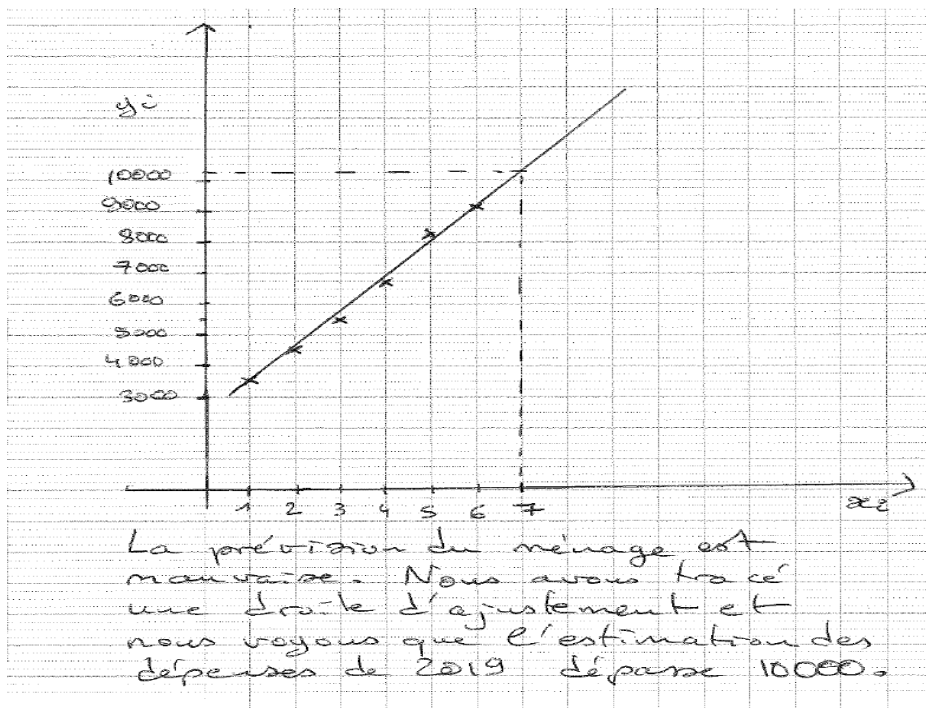 yi
10000
9000
8000
7000
6000
5000
4000
3000
1 2 3 4 5 6 7
xi
La prévision du ménage est
mauvaise. Nous avons tracé
une droite d'ajustement et
nous voyons que l'estimation des
dépenses de 2019 dépasse 10000.